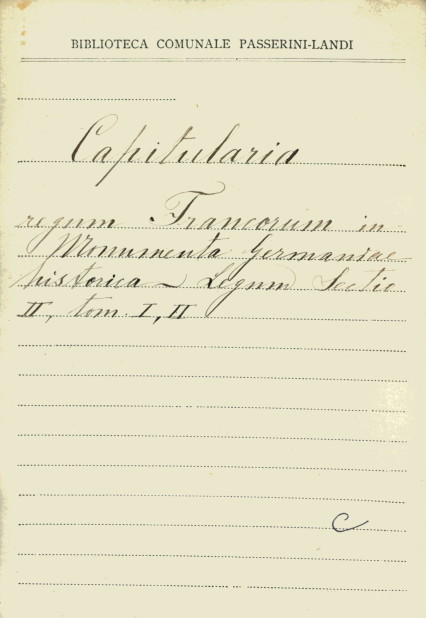 BIBLIOTECA COMUNALE PASSERINI-LANDI
Capitularia
regum Francorum in
Monumenta Germaniae
historica - Legum Sectio
II, tom. I, II
C